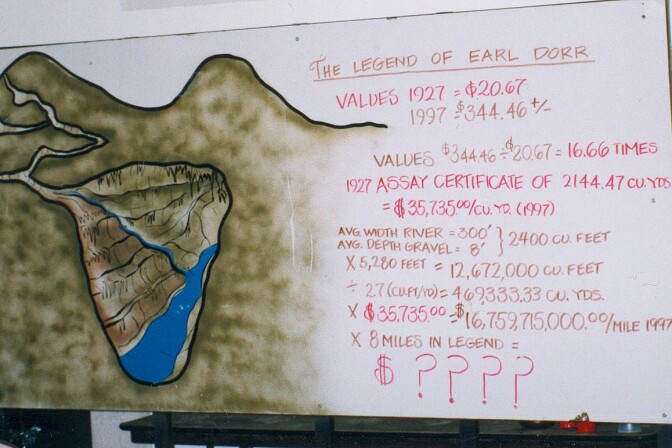 THE LEGEND OF EARL DORR
VALUES 1927 = $20.67
1997 = $344.46 +/-
VALUES $344.46 ÷ $20.67 = 16.66 TIMES
1927 ASSAY CERTIFICATE OF 2144.47 CU. YDS
= $35,735.00/CU. YD. (1997)
AVG. WIDTH RIVER = 300'
AVG. DEPTH GRAVEL = 8' } 2400 CU. FEET
X 5,280 FEET = 12,672,000 CU. FEET
÷ 27 (CU.FT/YD) = 469,333.33 CU. YDS.
X $35,735.00 = $16,759,715,000.00/MILE 1997
X 8 MILES IN LEGEND =
$ ? ? ? ?